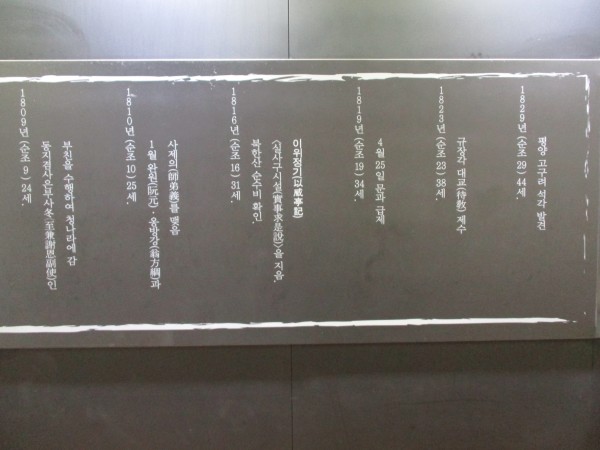 1809년 (순조 9) 24세.
동지겸사은부사冬至兼謝恩副使인
부친을 수행하여, 청나라에 감
1810년 (순조 10) 25세.
1월 완원(阮元)·옹방강(翁方綱)과
사제의(師弟義)를 맺음
1816년 (순조 16) 31세.
북한산 순수비 확인.
<실사구시설(實事求是說)>을 지음.
이위정기(以威亭記)
1819년 (순조 19) 34세.
4월 25일 문과 급제
1823년 (순조 23) 38세.
규장각 대교(待敎) 제수
1829년 (순조 29) 44세.
평양 고구려 석각 발견